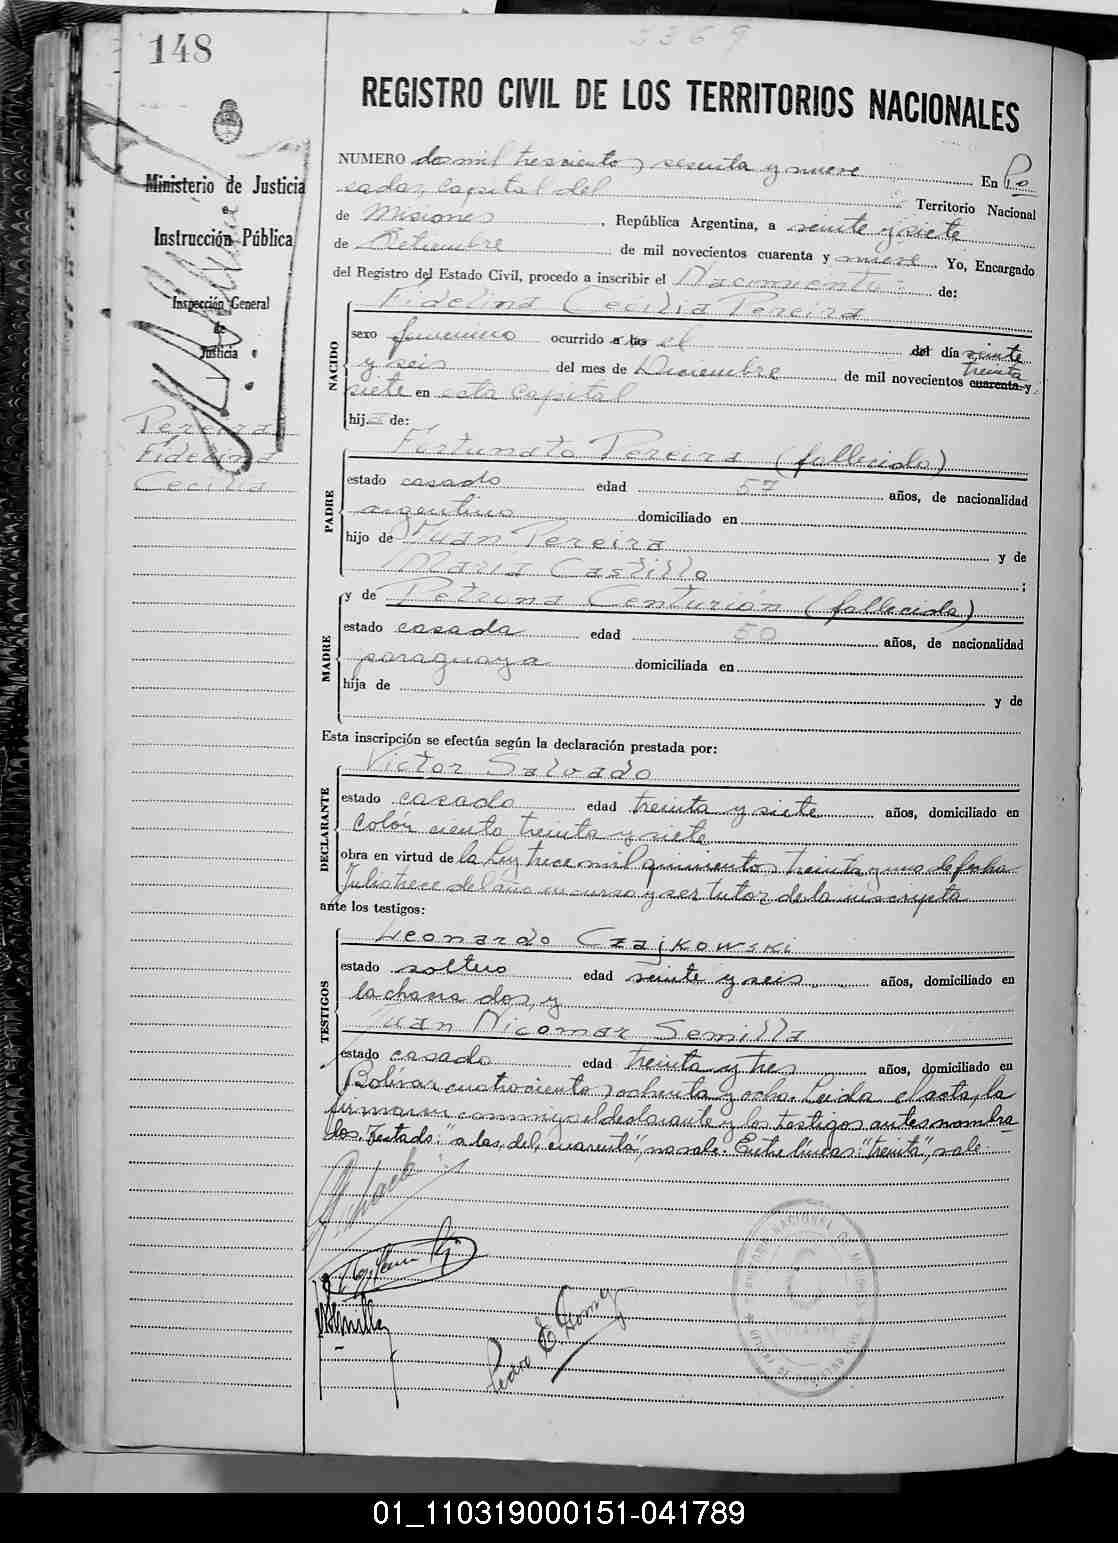 148
3369
REGISTRO CIVIL DE LOS TERRITORIOS NACIONALES
Ministerio de Justicia
e
Instrucción Pública
Inspección General
de
Justicia
Pereira
Fidelina
Cecilia
NUMERO dos mil trescientos sesenta y nueve En Po
sadas, capital del Territorio Nacional
de Misiones, República Argentina, a veinte y siete
de Setiembre de mil novecientos cuarenta y nueve. Yo, Encargado
del Registro del Estado Civil, procedo a inscribir el Nacimiento de:
NACIDO
Fidelina Cecilia Pereira
sexo femenino ocurrido a las el del día veinte
treinta
y seis del mes de Diciembre de mil novecientos cuarenta y
siete en esta capital
hija de:
PADRE
Fortunato Pereira (fallecido)
estado casado edad 57 años, de nacionalidad
argentino domiciliado en
hijo de Juan Pereira y de
María Castillo ;
MADRE
y de Petrona Centurión (fallecida)
estado casada edad 50 años, de nacionalidad
paraguaya domiciliada en
hija de y de
Esta inscripción se efectúa según la declaración prestada por:
DECLARANTE
Victor Salvado
estado casado edad treinta y siete años, domiciliado en
Colón ciento treinta y siete
obra en virtud de la Ley trece mil quinientos treinta y uno de fecha
Julio trece del año en curso y ser tutor de la inscripta
ante los testigos:
TESTIGOS
Leonardo Czajkowski
estado soltero edad veinte y seis años, domiciliado en
la chacra dos, y
Juan Nicomar Semilla
estado casado edad treinta y tres años, domiciliado en
Bolívar cuatrocientos ochenta y ocho. Leida el acta, la
firmaron conmigo el declarante y los testigos antes nombra
dos. Testado: "a las, del, cuarenta", no vale. Entre líneas: "treinta", vale
Semilla
Pedro E
01_110319000151-041789